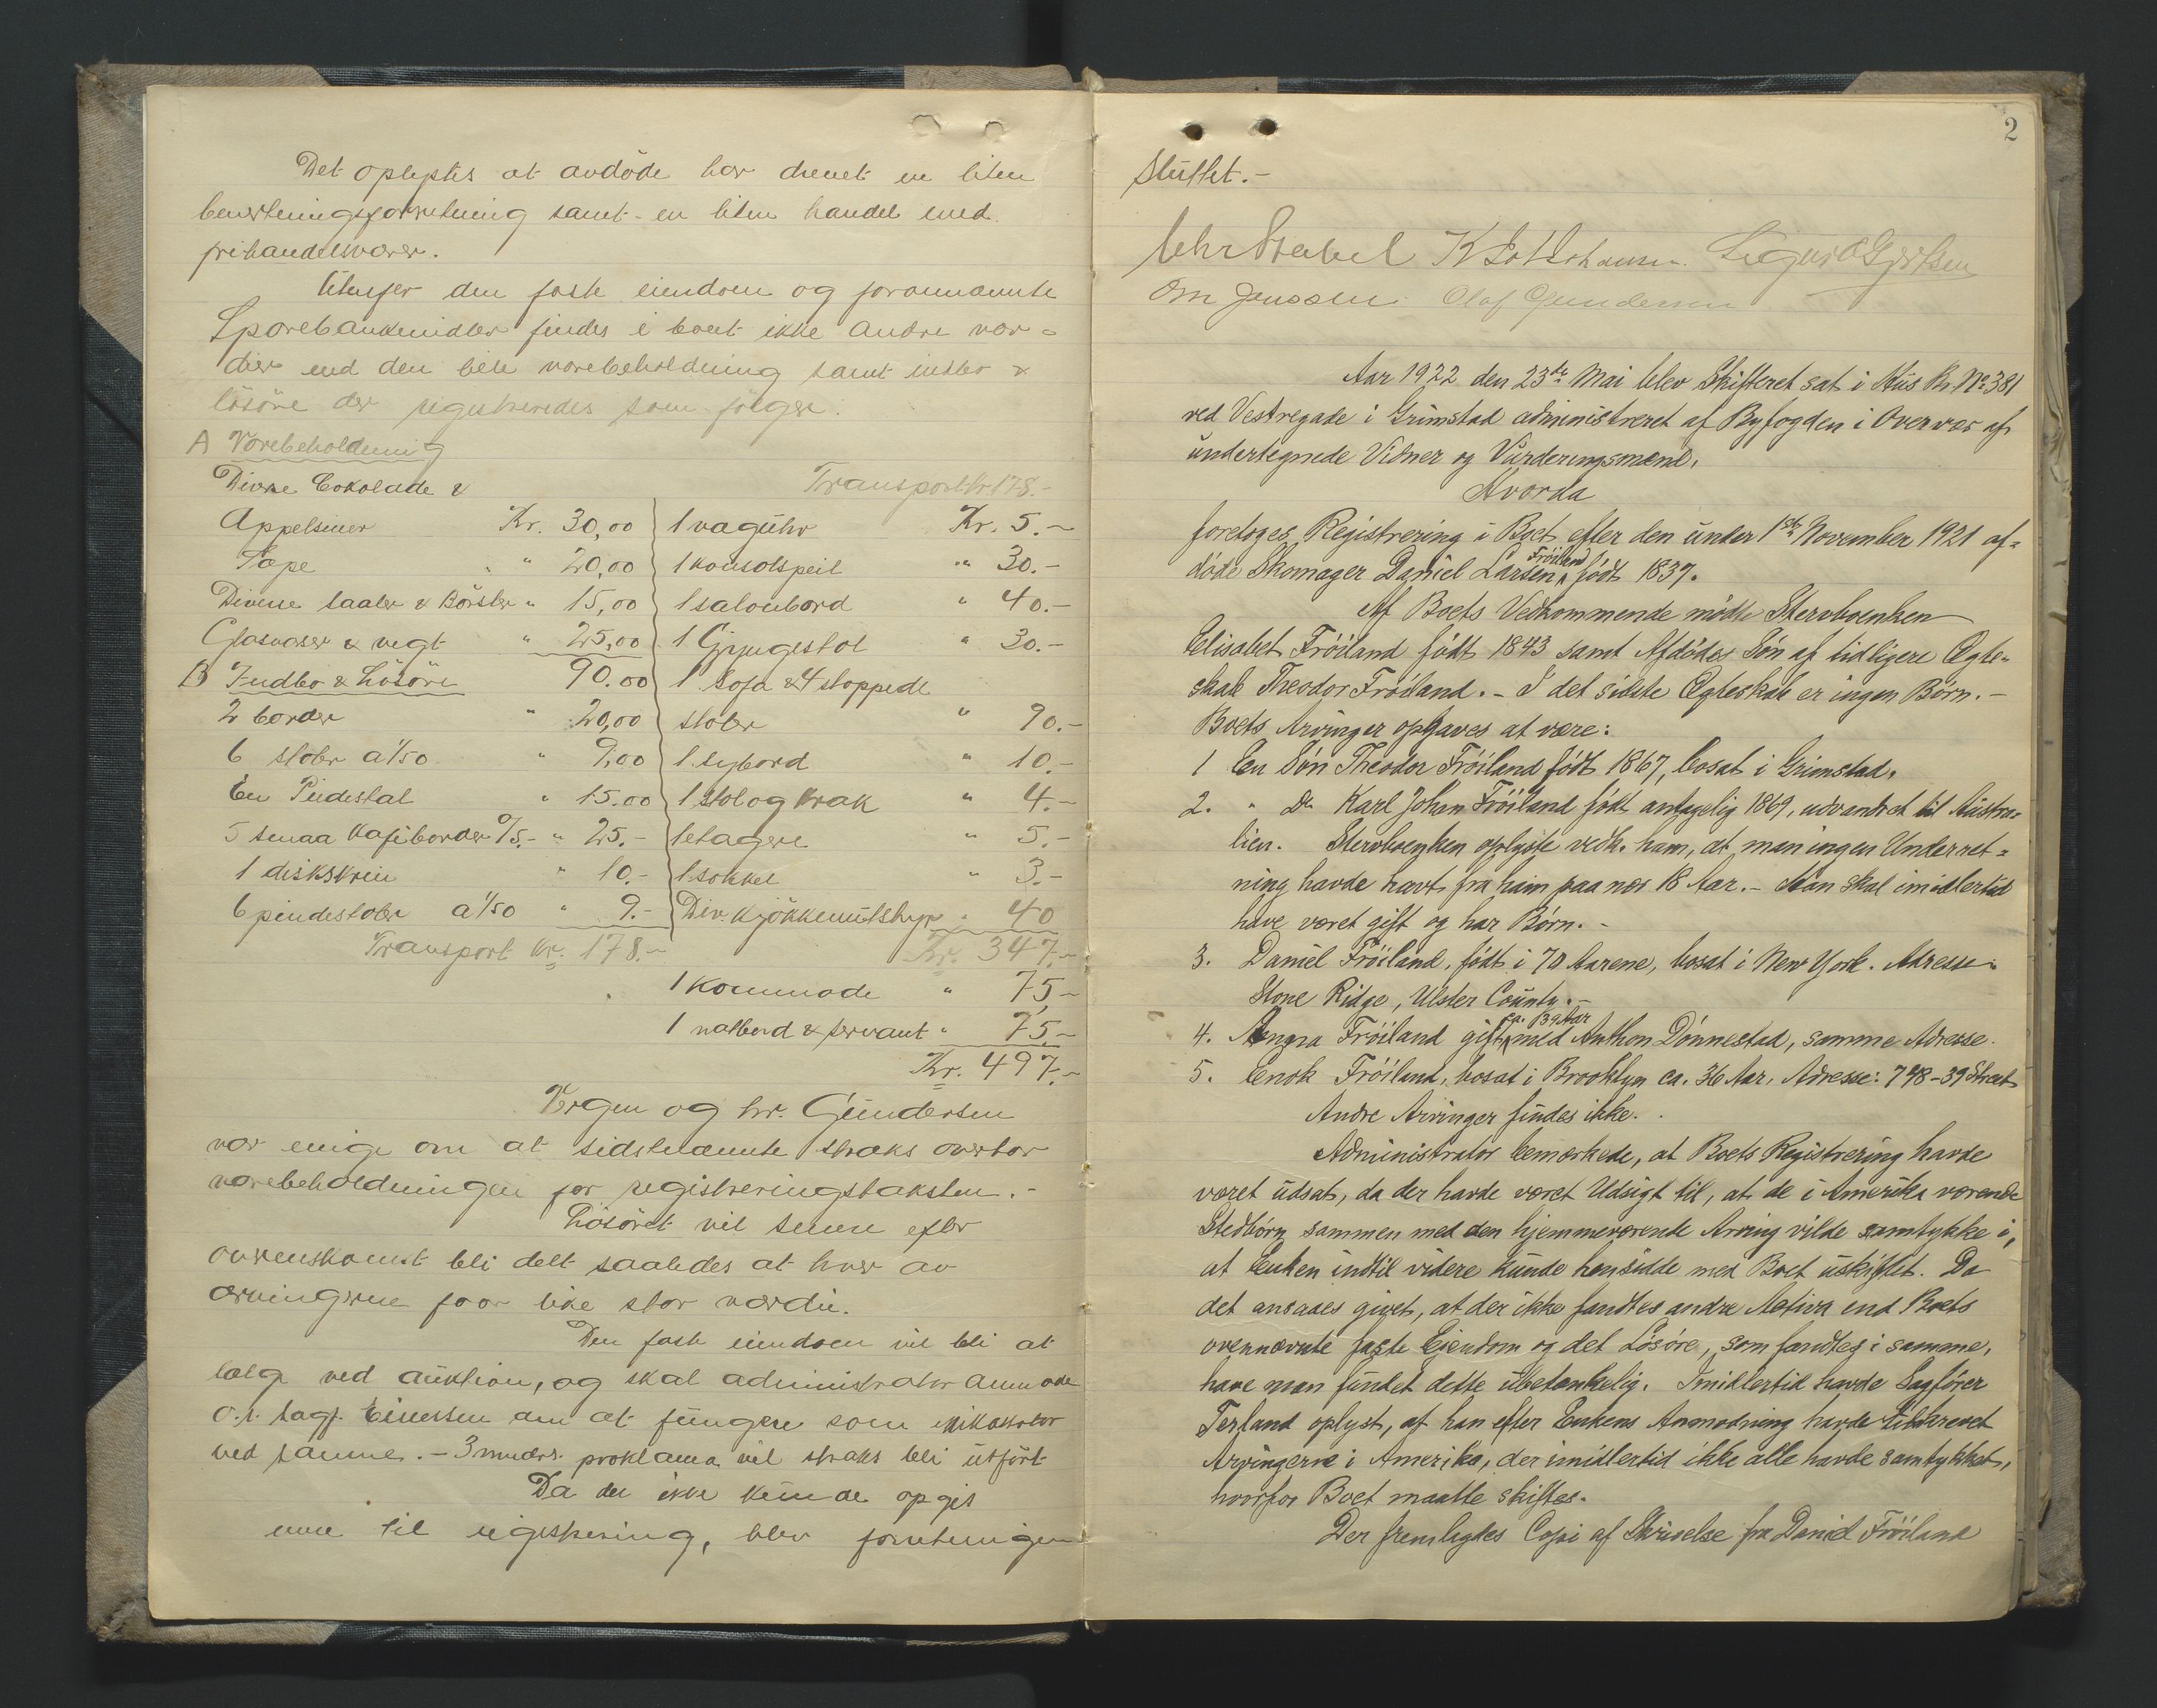 Det oplystes at avdöde har drevet en liten
bevertningsforretning samt en liten handel med
frihandelsvarer.
Utenfor den faste eiendom og forannævnte
Sparebankmidler findes i boet ikke andre vær=
dier end den lille varebeholdning samt indbo &
lösöre der registreredes som fölger.
A Varebeholdning
Divrse Cokolade &
Appelsiner Kr. 30,00
Sæpe " 20,00
Diverse saaler & Börster " 15,00
Glasvaser & vegt " 25,00
90.00
B Indbo & Lösöre
2 border " 20,00
6 stoler a 1/50 " 9,00
En Piedestal " 15.00
5 smaa Kafeborder a/5.- " 25.-
1 diskskrin " 10.-
6 pindestoler a 1/50 " 9.-
Transport Kr. 178.-
Transport Kr 178.-
1 vægühr Kr. 5.-
1 konsolspeil " 30.-
1 salonbord " 40.-
1 Gyngestol " 30.-
1 Sofa & 4 stoppede
stoler " 90.-
1 sybord " 10.-
1 stol og krak " 4.-
1 etagere " 5.-
1 sokkel " 3.-
Div. kjökkenutstyr " 40
Kr. 347.-
1 Kommode " 75.-
1 natbord & servant " 75.-
Kr. 497.-
Vergen og hr. Gündersen
var enige om at sidstnævnte straks overtar
varebeholdningen for registreringstaksten.-
Lösöret vil senere efter
overenskomst bli delt saaledes at hver av
arvingerne faar like stor værdi.
Den faste eiendom vil bli at
sælge ved auktion, og skal administrator anmode
o.r. sagf. om at füngere som inkassator
ved samme. - 3 mndrs. proklama vil straks bli ütfört
Da der ikke künde opgis
mere til registrering, blev forretningen
2
slüttet.-
Chr Stabel K Sigurd Gjertsen
Om Jenssen Olaf Gundersen
Aar 1922 den 23de Mai blev Skifteret sat i Hüs Br. No 381
ved Vestregade i Grimstad administreret af Byfogden i Overvær af
ündertegnede Vidner og Vürderingsmænd,
Hvorda
foretoges Registrering i Boet efter den ünder 1ste November 1921 af=
döde Skomager Daniel Larsen Fröiland födt 1837.
Af Boets Vedkommende mödte Stervboenken
Elisabet Fröiland födt 1843 samt Afdödes Sön af tidligere Ægte=
skab Theodor Fröiland. - I det sidste Ægteskab er ingen Börn. -
Boets Arvinger opgaves at være:
1 En Sön Theodor Fröiland födt 1867, bosat i Grimstad.
2. " Do Karl Johan Fröiland födt antagelig 1869, udvandret til Aüstra=
lien. Stervboenken oplyste vedk. ham, at man ingen Underret=
ning havde havt fra ham paa nær 18 Aar. - Han skal imidlertid
have været gift og har Börn. -
3. Daniel Fröiland, födt i 70 Aarene, bosat i New York. Adresse:
Stone Ridge, Ulster Coünty. -
4. Anna Fröiland ca. 39 Aar gift med Anthon Dönnestad, samme Adresse.
5. Enok Fröiland, bosat i Brooklyn ca. 36 Aar. Adresse: 748-39 Street
Andre Arvinger findes ikke.
Administrator bemærkede, at Boets Registrering havde
været üdsat, da der havde været Udsigt til, at de i Amerika værende
Stedbörn sammen med den hjemmeværende Arving vilde samtykke i,
at Enken indtil videre künde hensidde med Boet üskiftet. Da
det ansaaes givet, at der ikke fandtes andre Aktiva end Boets
ovennævnte faste Eiendom og det Lösöre, som fandtes i samme,
have man fündet dette übetænkelig. Imidlertid havde Sagförer
Terland oplyst, at han efter Enkens Anmodning havde tilskrevet
Arvingerne i Amerika, der imidlertid ikke alle havde samtykket,
hvorfor Boet maatte skiftes.
Der fremlagdes Copi af Skrivelse fra Daniel Fröiland